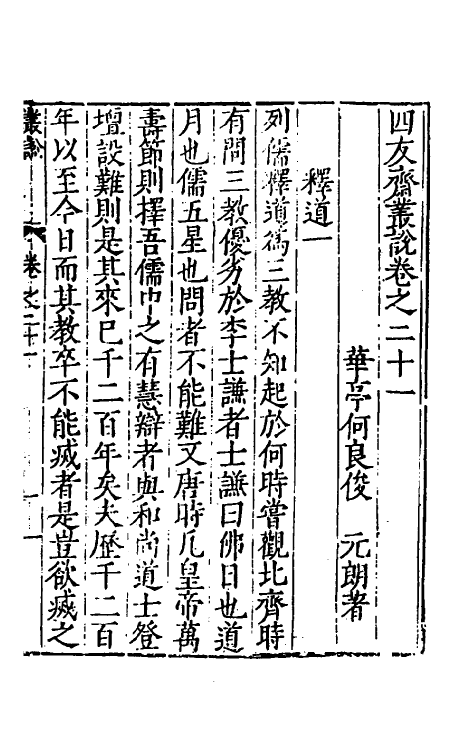 四友齋叢說卷之二十一
華亭何良俊　元朗著
釋道一
列儒釋道為三教不知起於何時嘗觀北齊時
有問三教優劣於李士謙者士謙曰佛日也道
月也儒五星也問者不能難又唐時凡皇帝萬
壽節則擇吾儒中之有慧辯者與和尚道士登
壇設難則是其來已千二百年矣夫歷千二百
年以至今日而其教卒不能滅者是豈欲滅之
叢說　卷之二十一　一